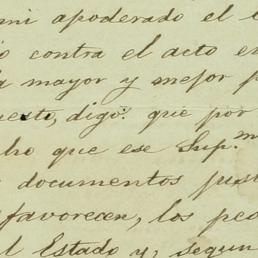 mi apoderado el
contra el acto
mayor y mejor
uesto, digo: que por
ho que ese Sup.mo
documentos just
favorecen, los ped
l Estado y, segun